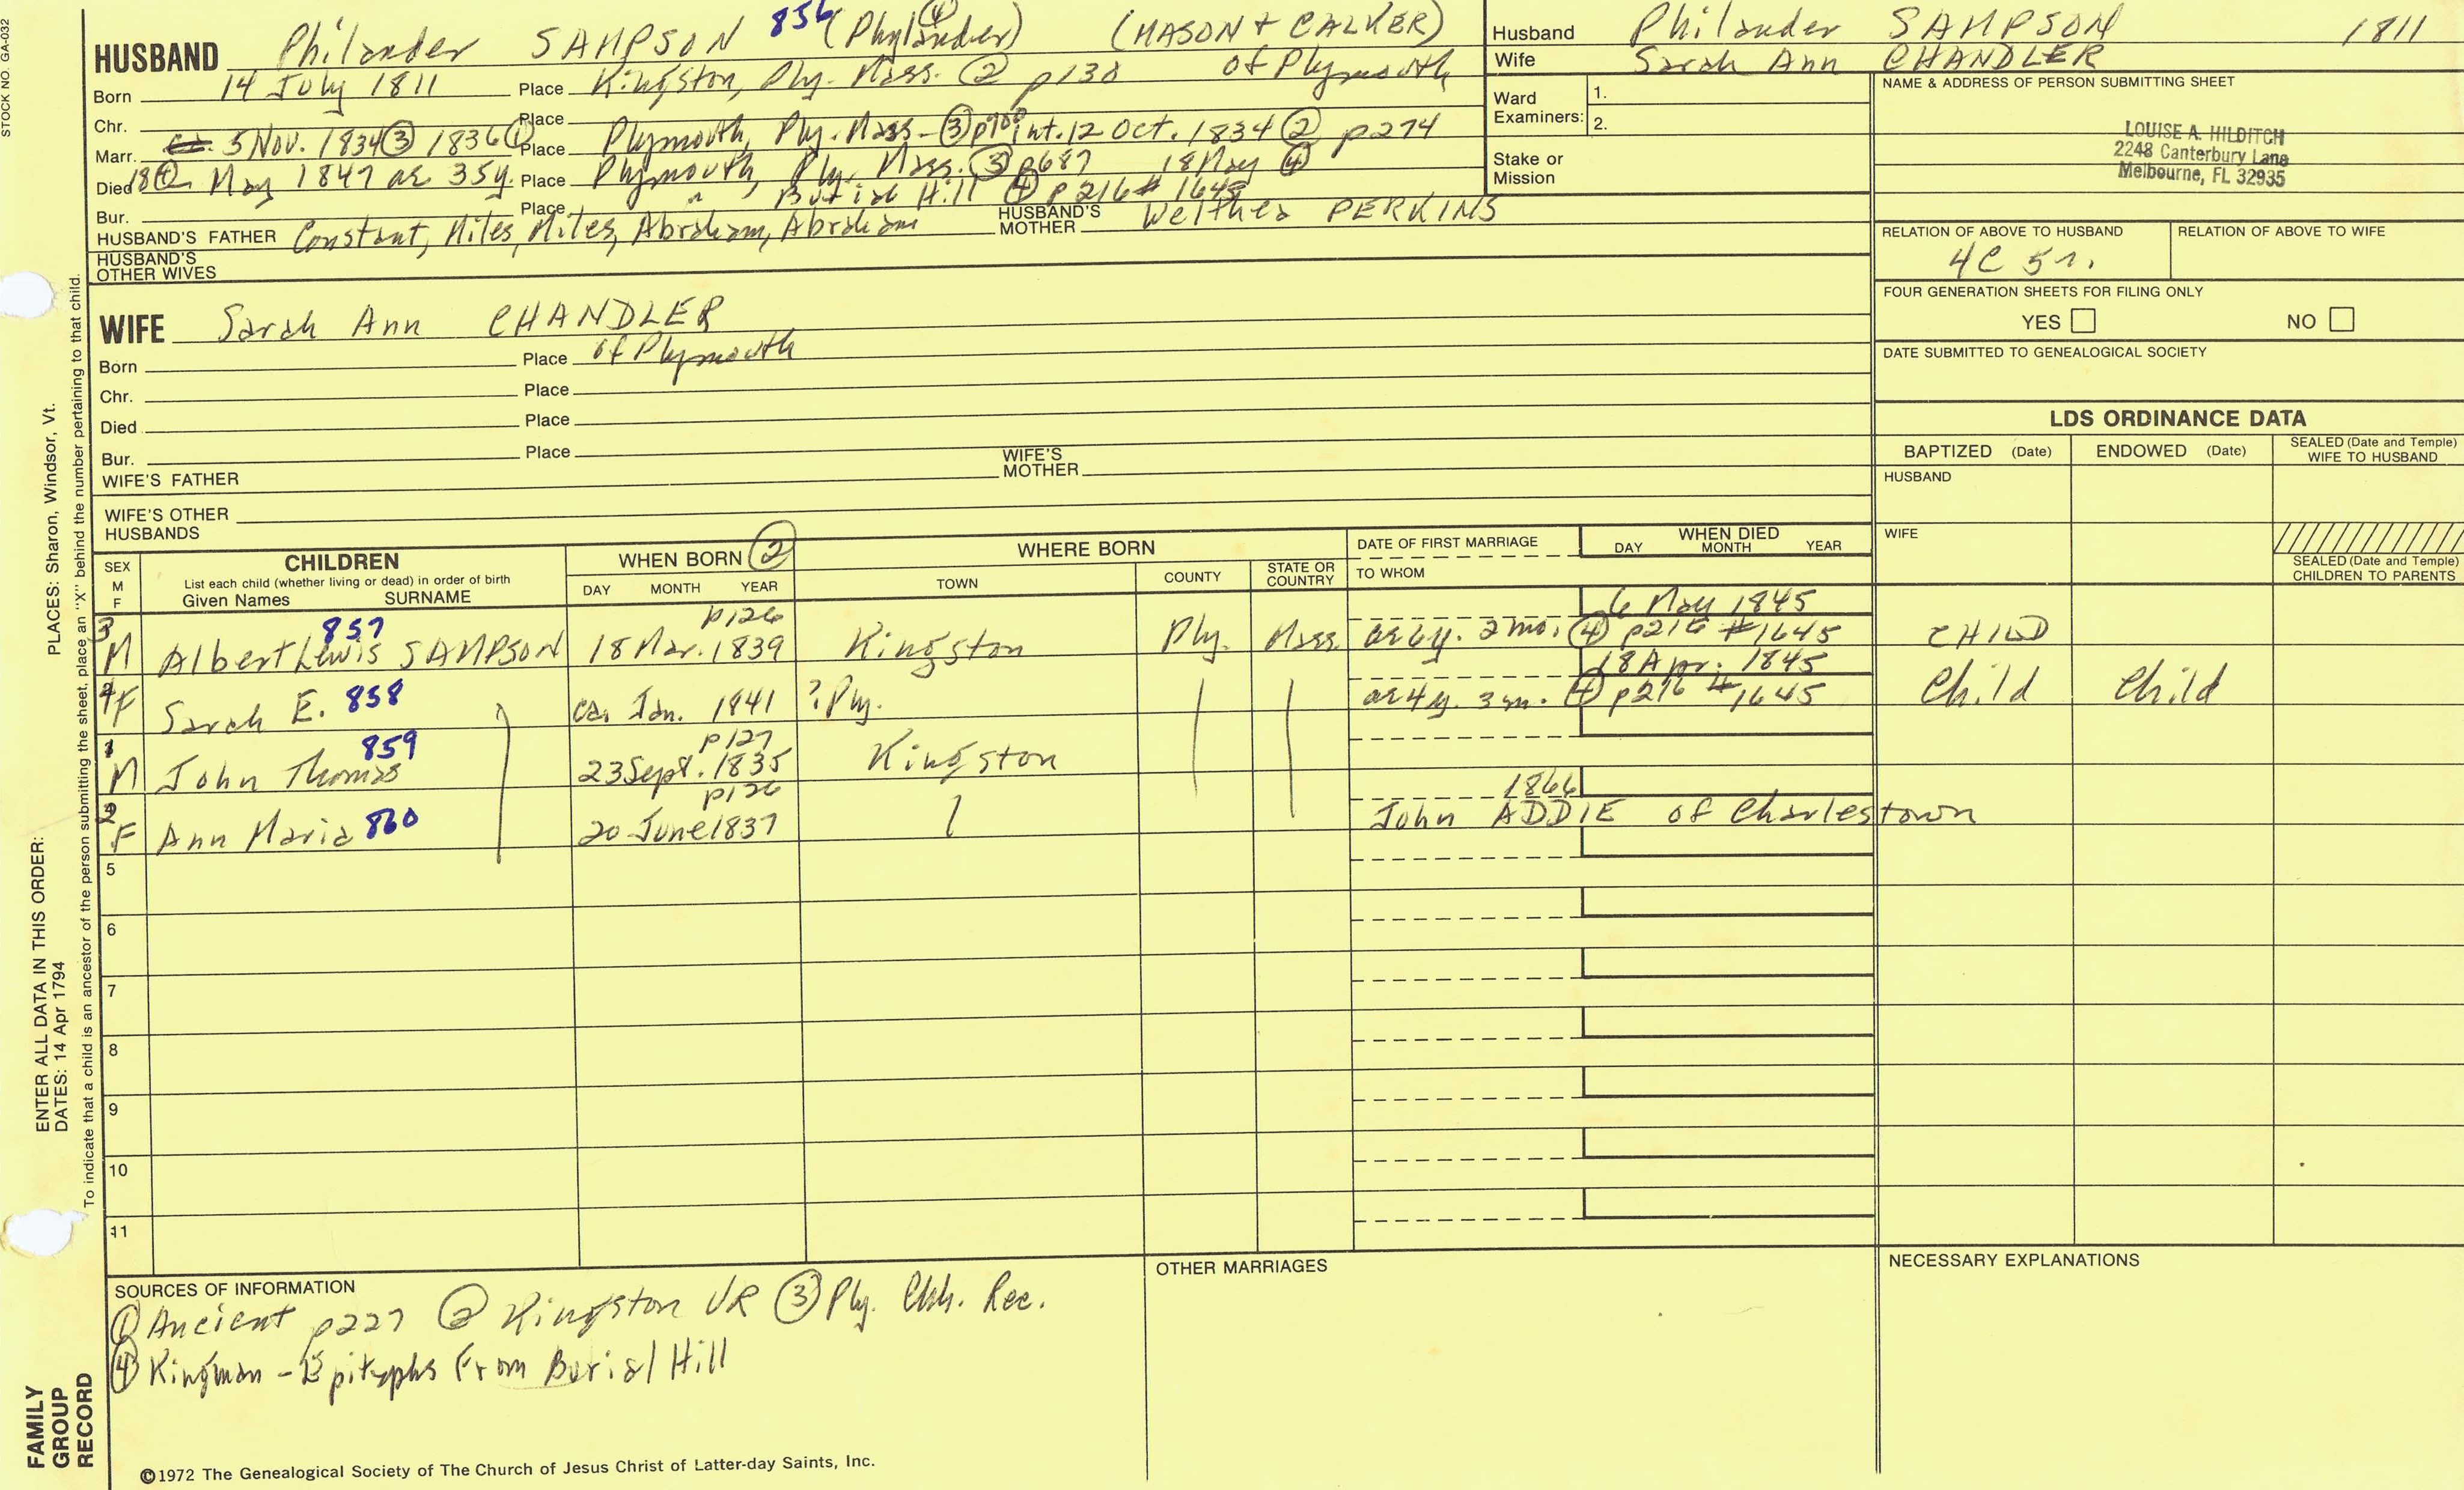 STOCK NO. GA-032
HUSBAND Philander SAMPSON 856 (Phylander) ④ (MASON & CALKER)
Born 14 July 1811 Place Kingston, Ply. Mass. ② p138 of Plymouth
Chr. Place
Marr. 5 Nov. 1834 ③ 1836 ① Place Plymouth, Ply. Mass - ③ int. 12 Oct. 1834 ② p274
Died 18 ④ May 1847 ae 35y. Place Plymouth, Ply. Mass. ③ p687 18 May ④
Bur. Place " Burial Hill ④ p216 # 1648
HUSBAND'S FATHER Constant, Miles, Miles, Abraham, Abraham HUSBAND'S MOTHER Welthea PERKINS
HUSBAND'S OTHER WIVES
WIFE Sarah Ann CHANDLER
Born Place of Plymouth
Chr. Place
Died Place
Bur. Place
WIFE'S FATHER WIFE'S MOTHER
WIFE'S OTHER HUSBANDS
Husband Philander SAMPSON 1811
Wife Sarah Ann CHANDLER
Ward Examiners: 1. 2.
Stake or Mission
NAME & ADDRESS OF PERSON SUBMITTING SHEET
LOUISE A. HILDITCH
2248 Canterbury Lane
Melbourne, FL 32935
RELATION OF ABOVE TO HUSBAND RELATION OF ABOVE TO WIFE
4C 5r.
FOUR GENERATION SHEETS FOR FILING ONLY
YES NO
DATE SUBMITTED TO GENEALOGICAL SOCIETY
LDS ORDINANCE DATA
BAPTIZED (Date) ENDOWED (Date) SEALED (Date and Temple) WIFE TO HUSBAND
HUSBAND
WIFE
SEALED (Date and Temple) CHILDREN TO PARENTS
SEX M F CHILDREN WHEN BORN ② WHERE BORN DATE OF FIRST MARRIAGE WHEN DIED
List each child (whether living or dead) in order of birth
Given Names SURNAME DAY MONTH YEAR TOWN COUNTY STATE OR COUNTRY TO WHOM DAY MONTH YEAR
p126 6 May 1845
3 M Albert Lewis SAMPSON 857 18 Mar. 1839 Kingston Ply. Mass. ae 6y. 2 mo. ④ p216 #1645 CHILD
18 Apr. 1845
4 F Sarah E. 858 ca. Jan. 1841 ?Ply. ae 4y. 3m. ④ p216 #1645 Child Child
p127
1 M John Thomas 859 23 Sept. 1835 Kingston
p126 1866
2 F Ann Maria 860 20 June 1837 John ADDIE of Charlestown
5
6
7
8
9
10
11
SOURCES OF INFORMATION
① Ancient p227 ② Kingston VR ③ Ply. Chh. Rec.
④ Kingman - Epitaphs From Burial Hill
OTHER MARRIAGES
NECESSARY EXPLANATIONS
©1972 The Genealogical Society of The Church of Jesus Christ of Latter-day Saints, Inc.
ENTER ALL DATA IN THIS ORDER:
DATES: 14 Apr 1794
PLACES: Sharon, Windsor, Vt.
To indicate that a child is an ancestor of the person submitting the sheet, place an "X" behind the number pertaining to that child.
FAMILY GROUP RECORD